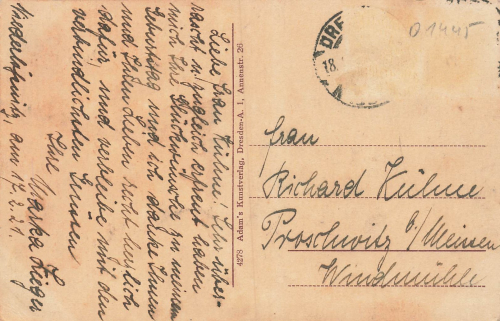 Liebe Frau Kühne! Sehr über-
rascht u. zugleich erfreut haben
mich Ihre Glückwünsche zu meinem
Geburtstag und ich danke Ihnen
und Ihren Lieben recht herzlich
dafür und verbleibe mit den
verbindlichsten Grüssen
Ihre
Niederlößnitz, am 17.2.21.
4278 Adam's Kunstverlag, Dresden-A. 1, Annenstr. 26.
DRE
18.
01445
Frau
Richard Kühne
Proschwitz b/Meissen
Windmühle